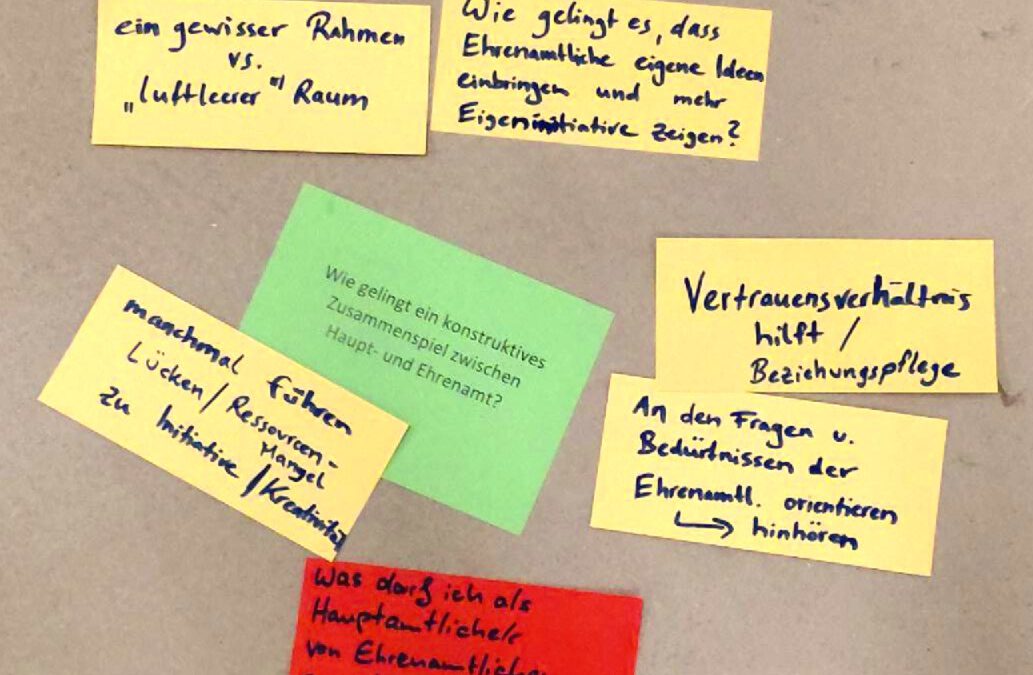 ein gewisser Rahmen
vs.
„luftleerer" Raum
Wie gelingt es, dass
Ehrenamtliche eigene Ideen
einbringen und mehr
Eigeninitiative zeigen?
Wie gelingt ein konstruktives
Zusammenspiel zwischen
Haupt- und Ehrenamt?
Vertrauensverhältnis
hilft /
Beziehungspflege
manchmal führen
Lücken/Ressourcen-
Mangel
zu Initiative/Kreativität
An den Fragen u.
Bedürfnissen der
Ehrenamtl. orientieren
↳ hinhören
Was darf ich als
Hauptamtliche/r
von Ehrenamtlichen